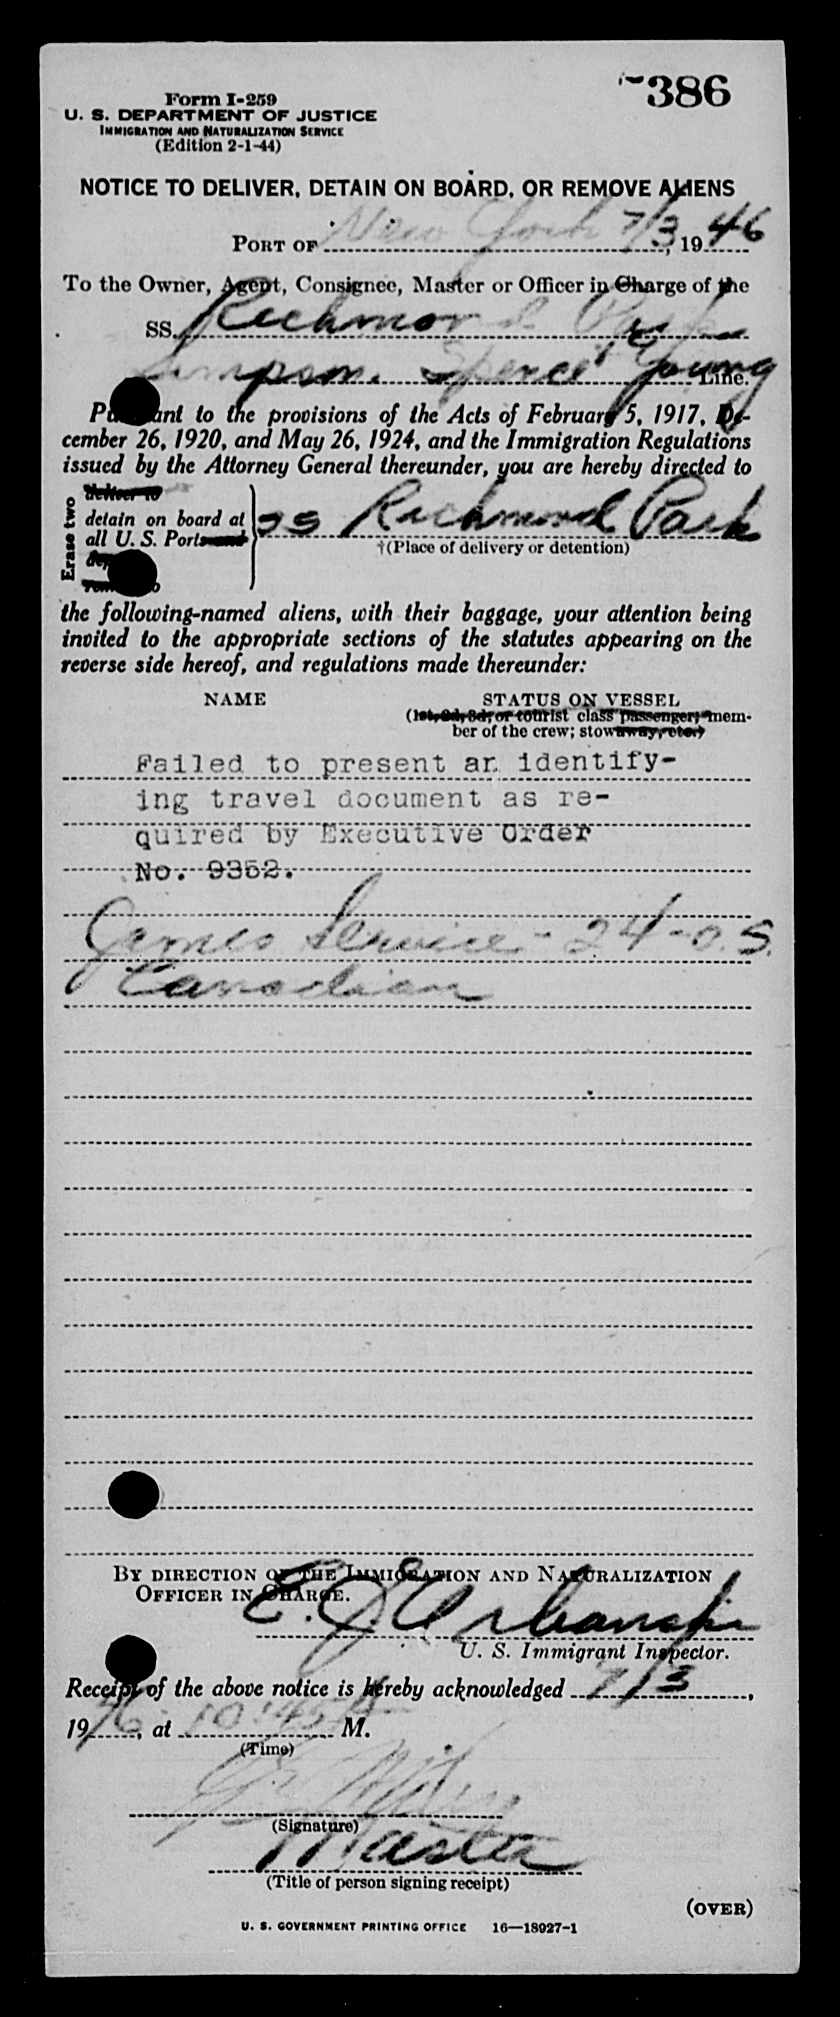 386
Form I-259
U. S. DEPARTMENT OF JUSTICE
IMMIGRATION AND NATURALIZATION SERVICE
(Edition 2-1-44)
NOTICE TO DELIVER, DETAIN ON BOARD, OR REMOVE ALIENS
PORT OF New York 7/3, 1946
To the Owner, Agent, Consignee, Master or Officer in Charge of the
SS. Richmond Park
Simpson, Spence & Young Line.
Pursuant to the provisions of the Acts of February 5, 1917, De-
cember 26, 1920, and May 26, 1924, and the Immigration Regulations
issued by the Attorney General thereunder, you are hereby directed to
Erase two
deliver to
detain on board at
all U. S. Ports and
SS Richmond Park
†(Place of delivery or detention)
the following-named aliens, with their baggage, your attention being
invited to the appropriate sections of the statutes appearing on the
reverse side hereof, and regulations made thereunder:
NAME STATUS ON VESSEL
(1st, 2d, 3d, or tourist class passenger; mem-
ber of the crew; stowaway, etc.)
Failed to present an identify-
ing travel document as re-
quired by Executive Order
No. 9352.
James Service - 24 - O.S.
Canadian
BY DIRECTION OF THE IMMIGRATION AND NATURALIZATION
OFFICER IN CHARGE.
E. J. Urbanski
U. S. Immigrant Inspector.
Receipt of the above notice is hereby acknowledged 7/3,
1946, at 10:45 A M.
(Time)
(Signature)
Master
(Title of person signing receipt)
(OVER)
U. S. GOVERNMENT PRINTING OFFICE 16—18927-1